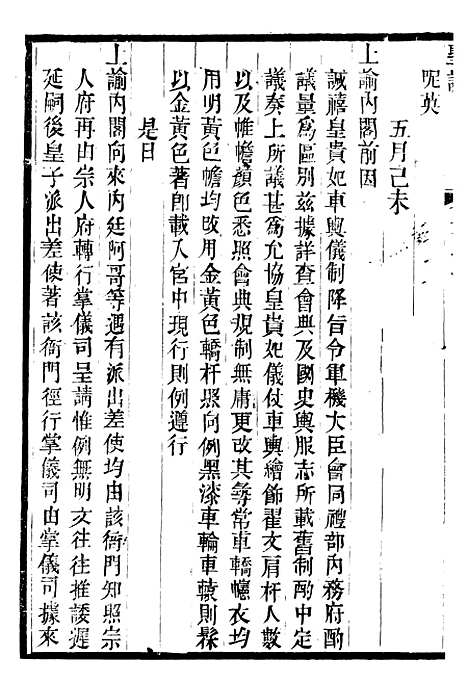 昵英
五月己未
上諭內閣前因
誠禧皇貴妃車輿儀制降旨令軍機大臣會同禮部內務府酌
議量爲區別茲據詳查會典及國史輿服志所載舊制酌中定
議奏上所議甚爲允協皇貴妃儀仗車輿繪飾翟文肩杆人數
以及帷幨顏色悉照會典規制無庸更改其尋常車轎幰衣均
用明黃色幨均改用金黃色轎杆照向例黑漆車輪車轅則髹
以金黃色著即載入宮中現行則例遵行
是日
上諭內閣向來內廷阿哥等遇有派出差使均由該衙門知照宗
人府再由宗人府轉行掌儀司呈請惟例無明文往往推諉遲
延嗣後皇子派出差使著該衙門徑行掌儀司由掌儀司據來